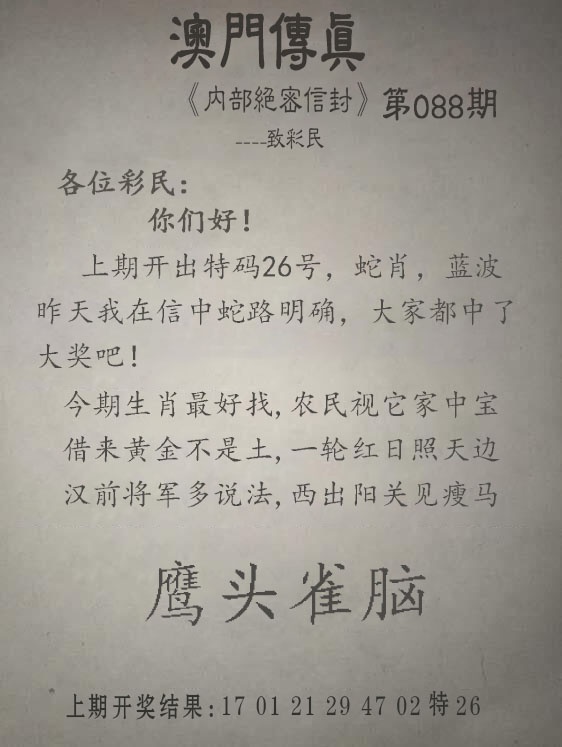 澳門傳眞
《内部絕密信封》第088期
----致彩民
各位彩民:
你们好!
上期开出特码26号，蛇肖，蓝波
昨天我在信中蛇路明确，大家都中了
大奖吧!
今期生肖最好找,农民视它家中宝
借来黄金不是土,一轮红日照天边
汉前将军多说法,西出阳关见瘦马
鹰头雀脑
上期开奖结果:17 01 21 29 47 02特26